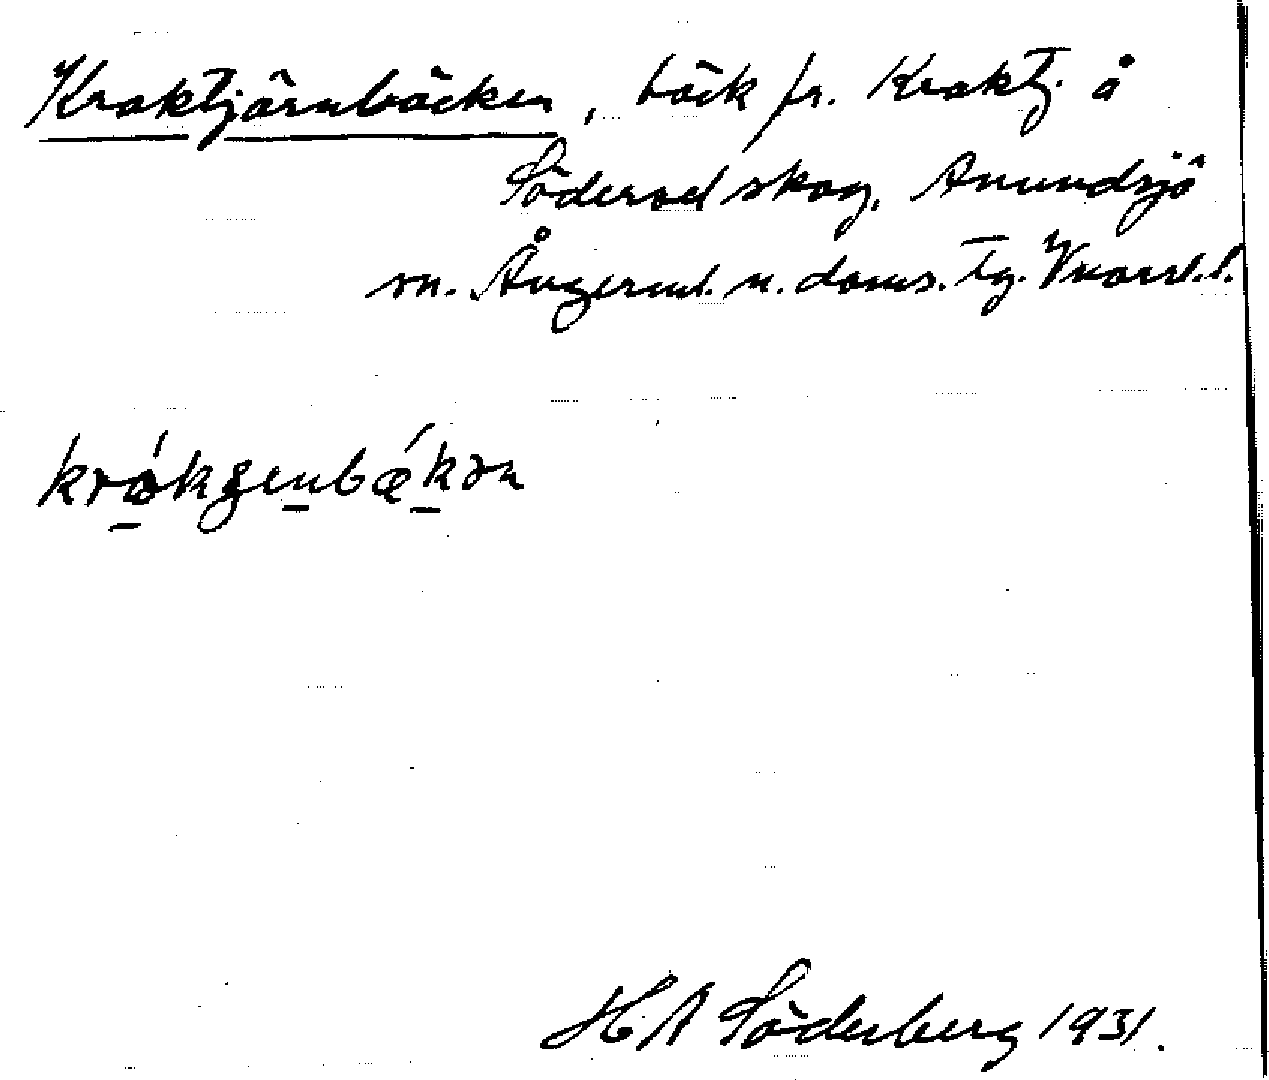 Kraktjärnbäcken, bäck fr. Kraktj. å
Söderoel skog, Anundsjö
sn. Ångerml. n. doms. Tg. Vnorrl. l.
krákʒenbǽkən
H A Söderberg 1931.